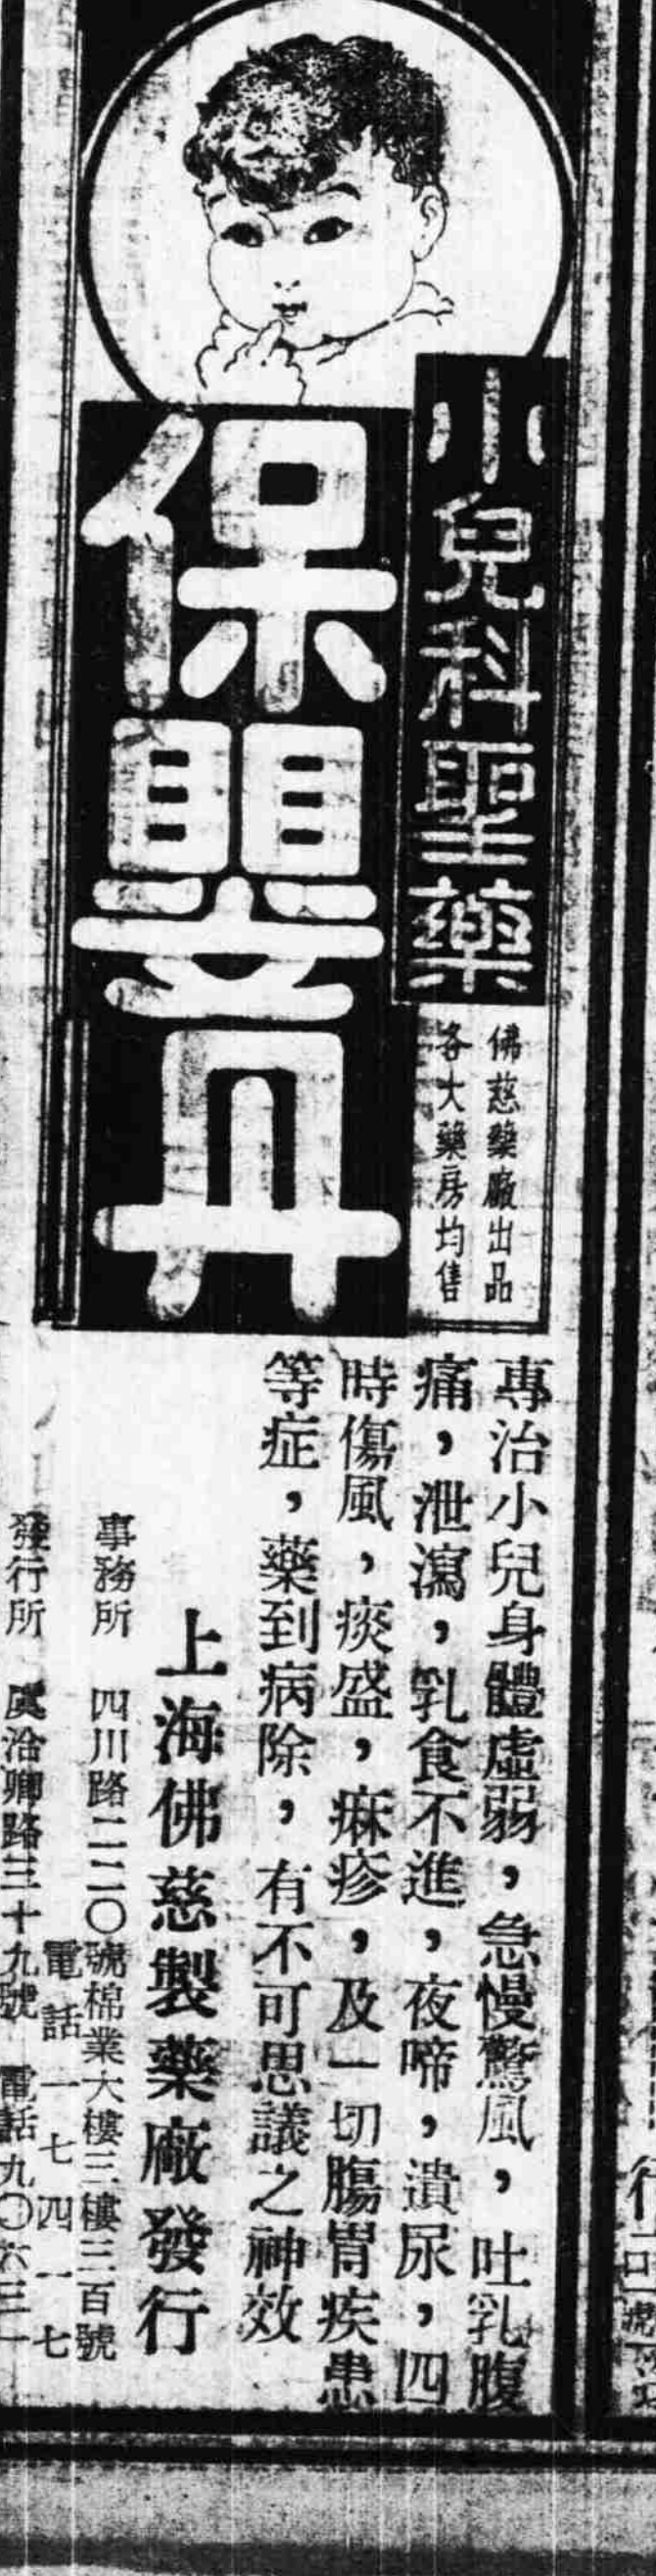 小兒科聖藥
保嬰丹
佛慈藥廠出品
各大藥房均售
專治小兒身體虛弱，急慢驚風，吐乳腹
痛，泄瀉，乳食不進，夜啼，遺尿，四
時傷風，痰盛，痳疹，及一切腸胃疾患
等症，藥到病除，有不可思議之神效
上海佛慈製藥廠發行
事務所 四川路二二〇號棉業大樓三樓三百號
電話一七四一七
發行所 虞洽卿路三十九號 電話九〇六三一